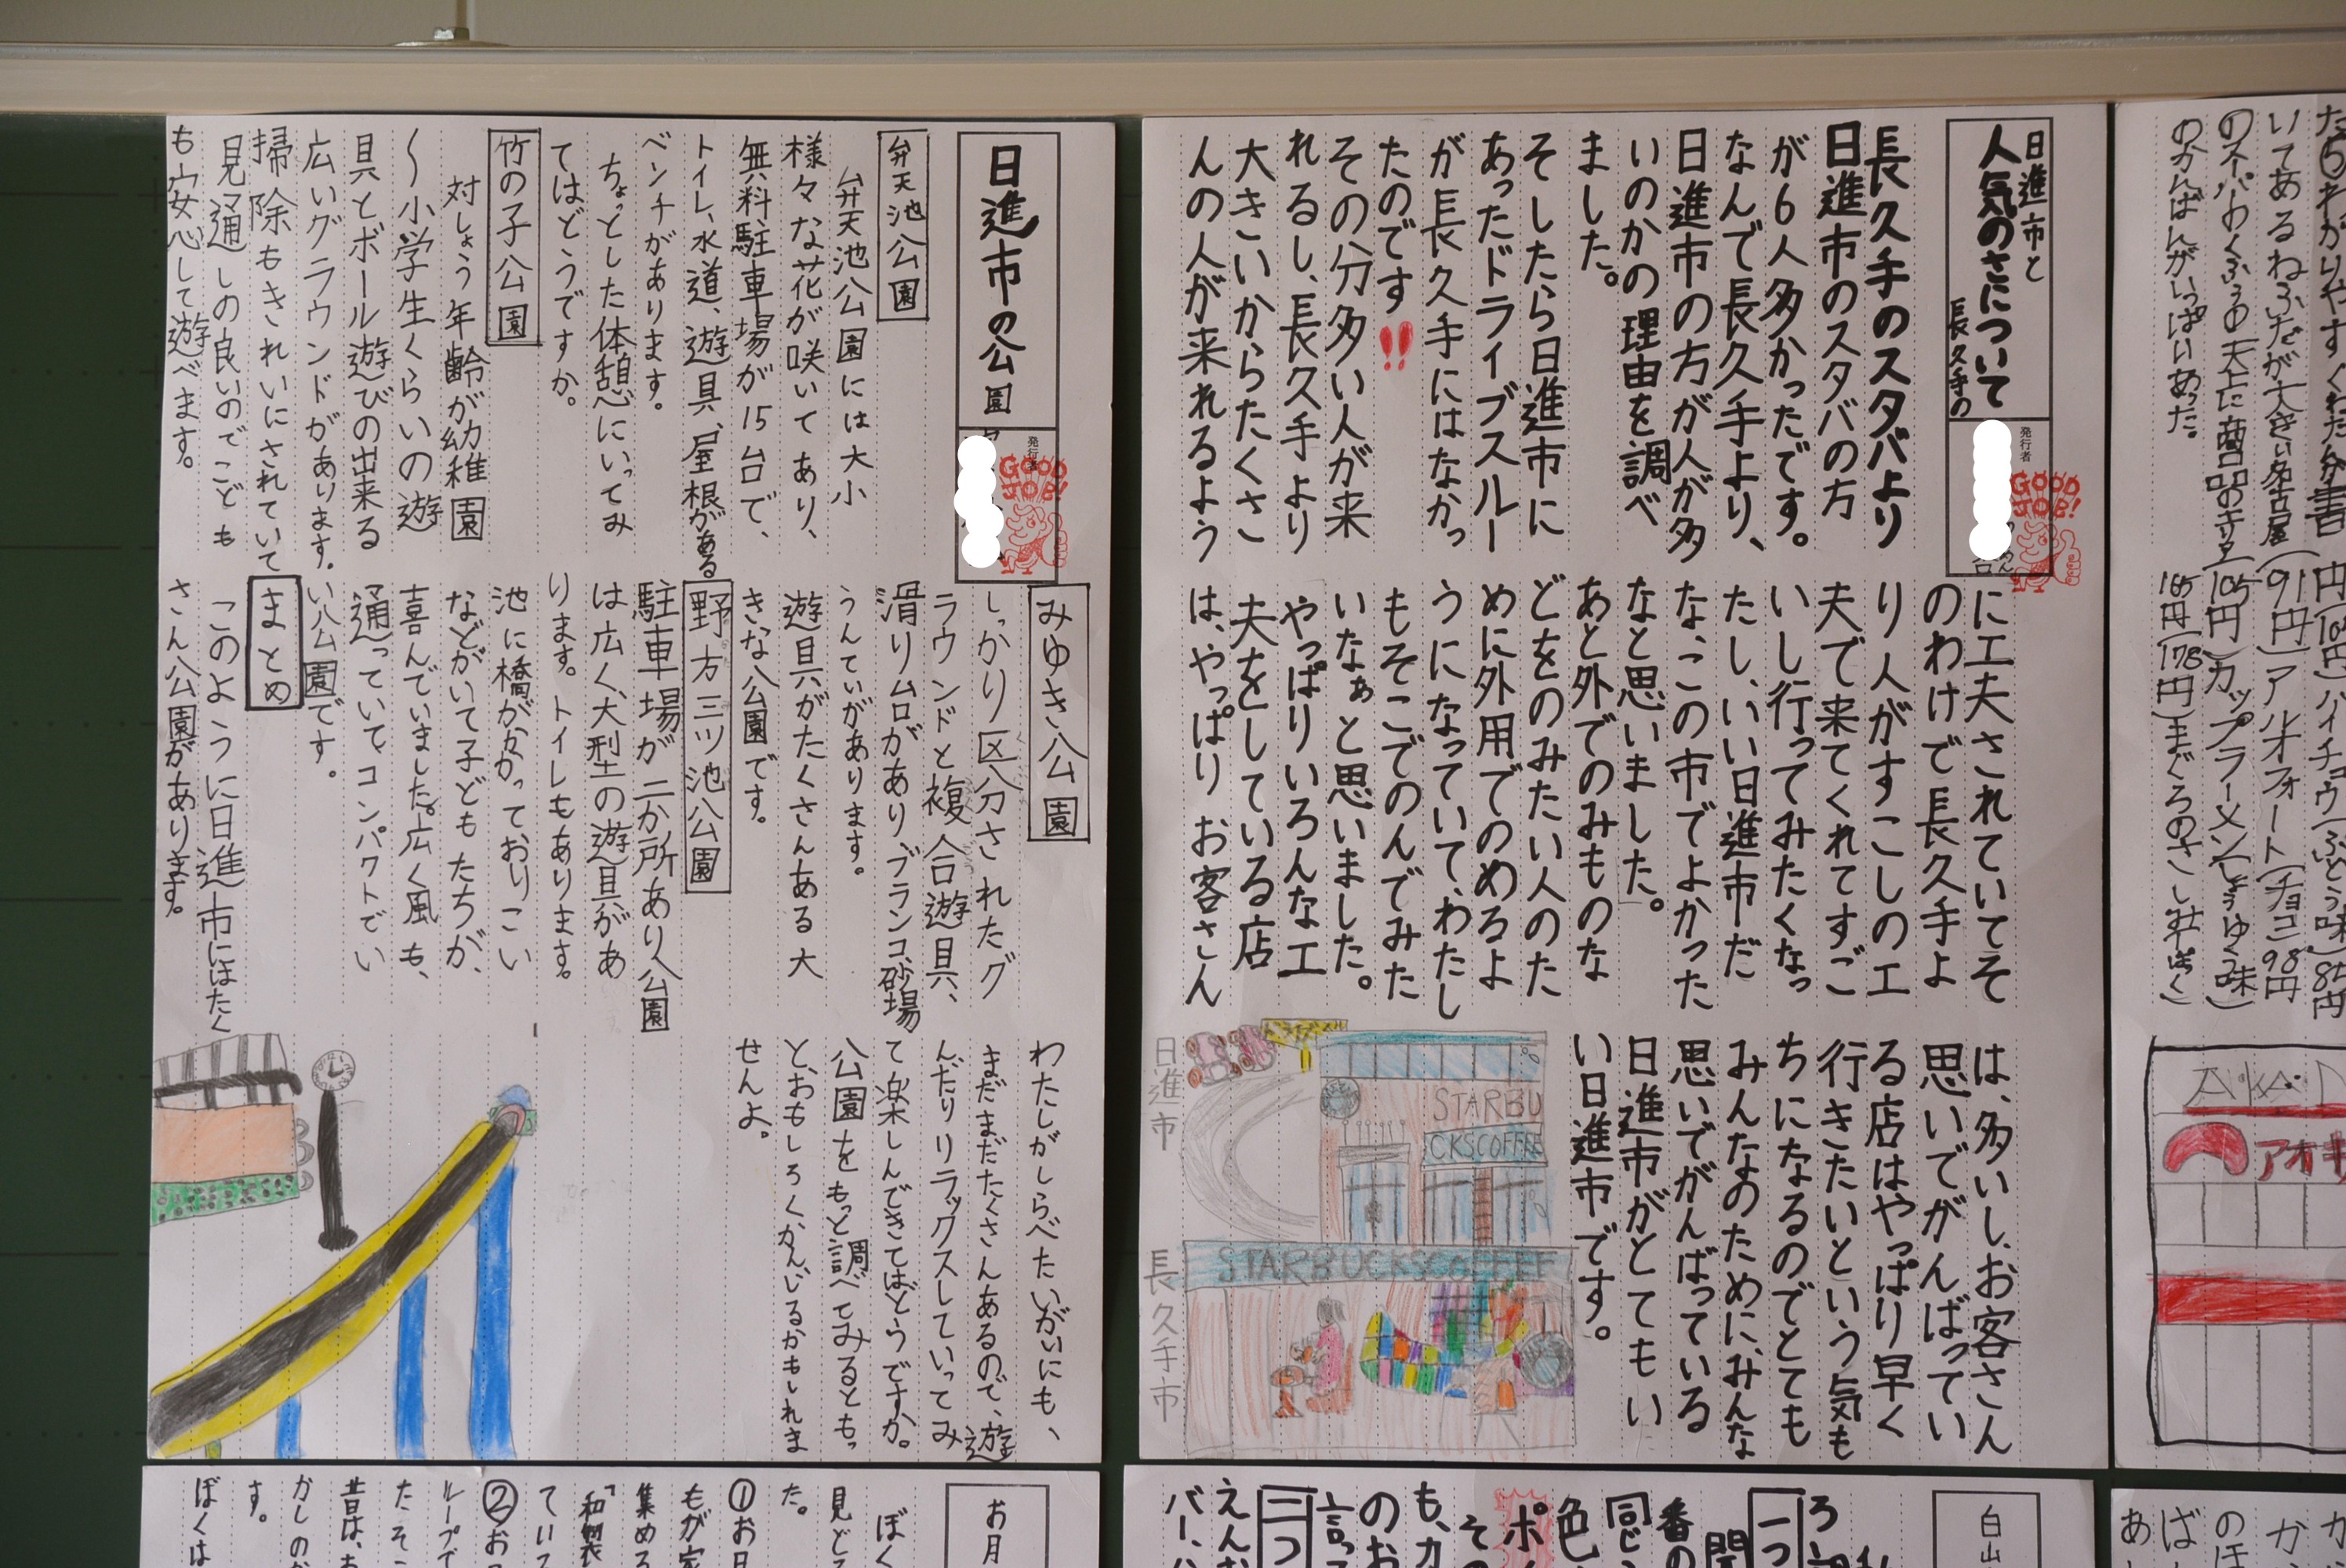 日進市と
長久手の
人気のさについて
発行者
GOOD
JOB!
長久手のスタバより
日進市のスタバの方
が6人多かったです。
なんで長久手より、
日進市の方が人が多
いのかの理由を調べ
ました。
そしたら日進市に
あったドライブスルー
が長久手にはなかっ
たのです!!
その分多い人が来
れるし、長久手より
大きいからたくさ
んの人が来れるよう
に工夫されていてそ
のわけで長久手よ
り人がすこしの工
夫で来てくれてすご
いし行ってみたくなっ
たし、いい日進市だ
な、この市でよかった
なと思いました。
あと外でのみものな
どをのみたい人のた
めに外用でのめるよ
うになっていて、わたし
もそこでのんでみた
いなぁと思いました。
やっぱりいろんな工
夫をしている店
は、やっぱりお客さん
は、多いし、お客さん
思いでがんばってい
る店はやっぱり早く
行きたいという気も
ちになるのでとても
みんなのために、みんな
思いでがんばっている
日進市がとてもい
い日進市です。
日進市
STARBU
CKSCOFFEE
長久手市
STARBUCKSCOFFEE
日進市の公園
発行者
GOOD
JOB!
弁天池公園
弁天池公園には大小
様々な花が咲いてあり、
無料駐車場が15台で、
トイレ、水道、遊具、屋根がある
ベンチがあります。
ちょっとした体憩にいってみ
てはどうですか。
竹の子公園
対しょう年齢が幼稚園
〜小学生くらいの遊
具とボール遊びの出来る
広いグラウンドがあります。
掃除もきれいにされていて
見通しの良いのでこども
も安心して遊べます。
みゆき公園
しっかり区分されたグ
ラウンドと複合遊具、
滑り台があり、ブランコ、砂場
うんていがあります。
遊具がたくさんある大
きな公園です。
野方三ツ池公園
駐車場が二か所あり公園
は広く、大型の遊具があ
ります。トイレもあります。
池に橋がかかっておりこい
などがいて子どもたちが、
喜んでいました。広く風も、
通っていて、コンパクトでい
い公園です。
まとめ
このように日進市にはたく
さん公園があります。
わたしがしらべたいがいにも、
まだまだたくさんあるので、遊
んだりリラックスしていってみ
て楽しんできてはどうですか。
公園をもっと調べてみるともっ
と、おもしろくかんじるかもしれま
せんよ。
いてあるねふだが大きい名古屋
のかんばんがいっぱいあった。
アオキ
お月
ぼく
見どこ
た。
①お日
もが家
集める
「和製衣
ている
②おつ
ループで
たそこ
昔は、お
かしのか
す。
ぼくは
白山
一つ
番の
同じ
色
ポイ
言って
のお
も、カ
三つ
えんお
バー、ハ